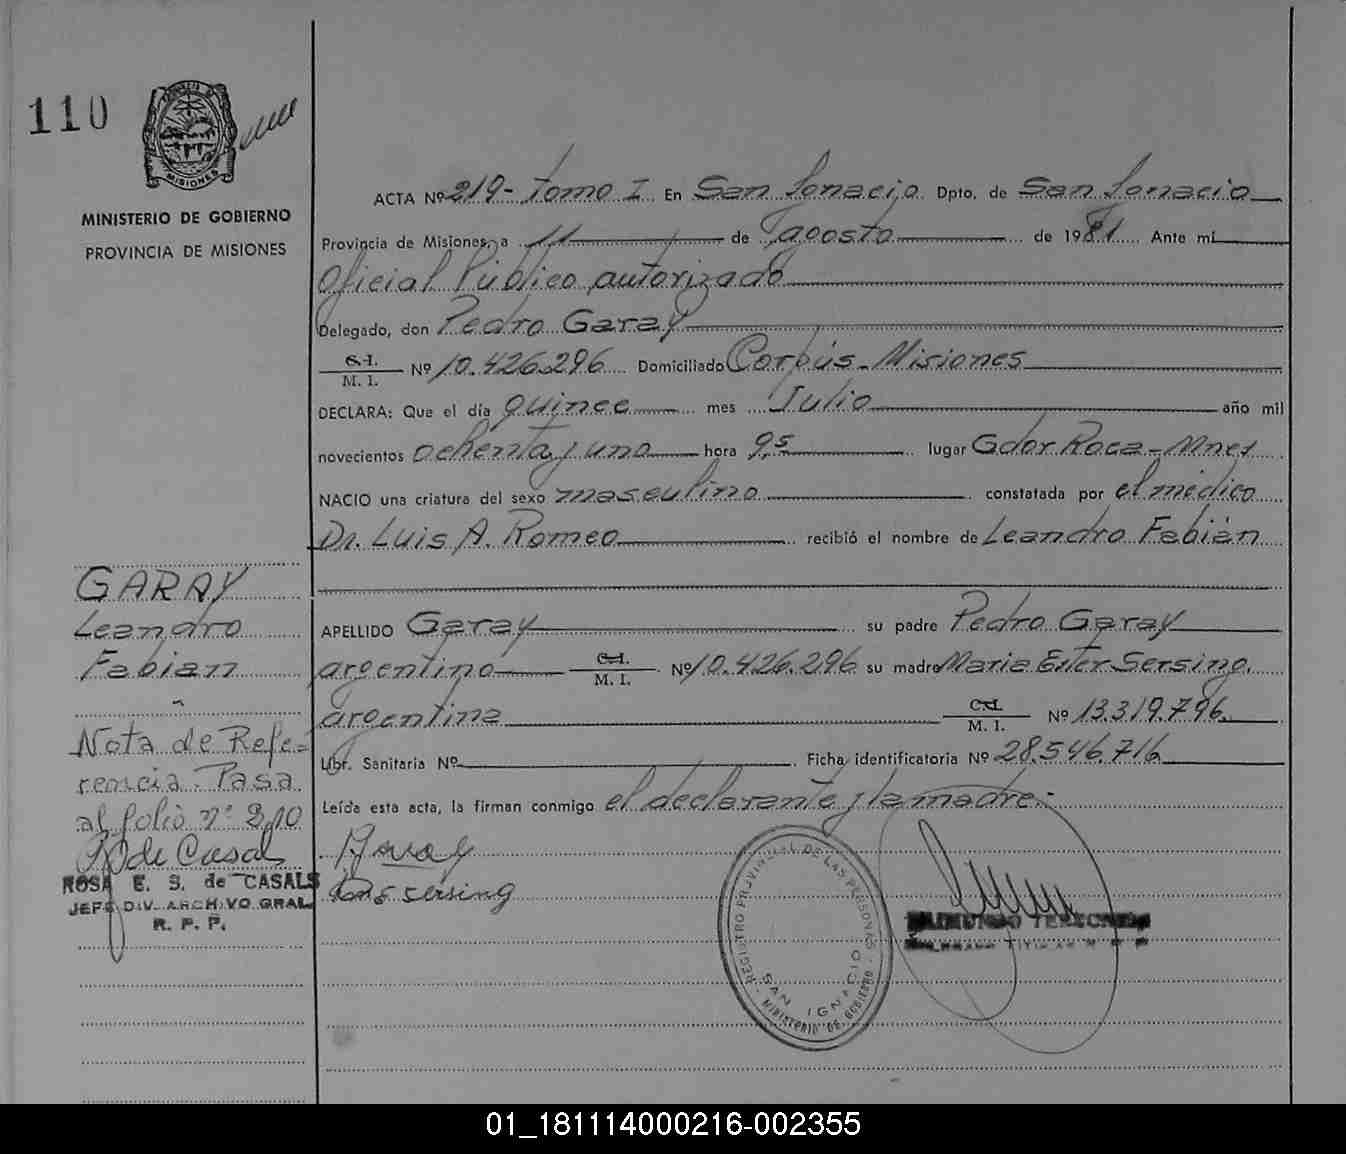 110
MISIONES
MINISTERIO DE GOBIERNO
PROVINCIA DE MISIONES
ACTA Nº 219 - Tomo I En San Ignacio Dpto. de San Ignacio
Provincia de Misiones, a 11 de agosto de 1981 Ante mí
Oficial Público autorizado
Delegado, don Pedro Garay
C.I.
M. I. Nº 10.426.296 Domiciliado Corpús - Misiones
DECLARA: Que el día quince mes Julio año mil
novecientos ochenta y uno hora 9,5 lugar Gdor Roca - Mnes
NACIO una criatura del sexo masculino constatada por el médico
Dr. Luis A. Romeo recibió el nombre de Leandro Fabián
APELLIDO Garay su padre Pedro Garay
argentino C.I.
M. I. Nº 10.426.296 su madre Maria Ester Sersing
argentina C.I.
M. I. Nº 13.319.796
Libr. Sanitaria Nº Ficha identificatoria Nº 28.546.716
Leída esta acta, la firman conmigo el declarante y la madre.-
GARAY
Leandro
Fabian
Nota de Refe-
rencia. Pasa
al folio nº 210
de Casals
ROSA E. S. de CASALS
JEFE DIV. ARCHIVO GRAL.
R. P. P.
Garay
sersing
REGISTRO PROVINCIAL DE LAS PERSONAS
SAN IGNACIO
MINISTERIO DE GOBIERNO
01_181114000216-002355